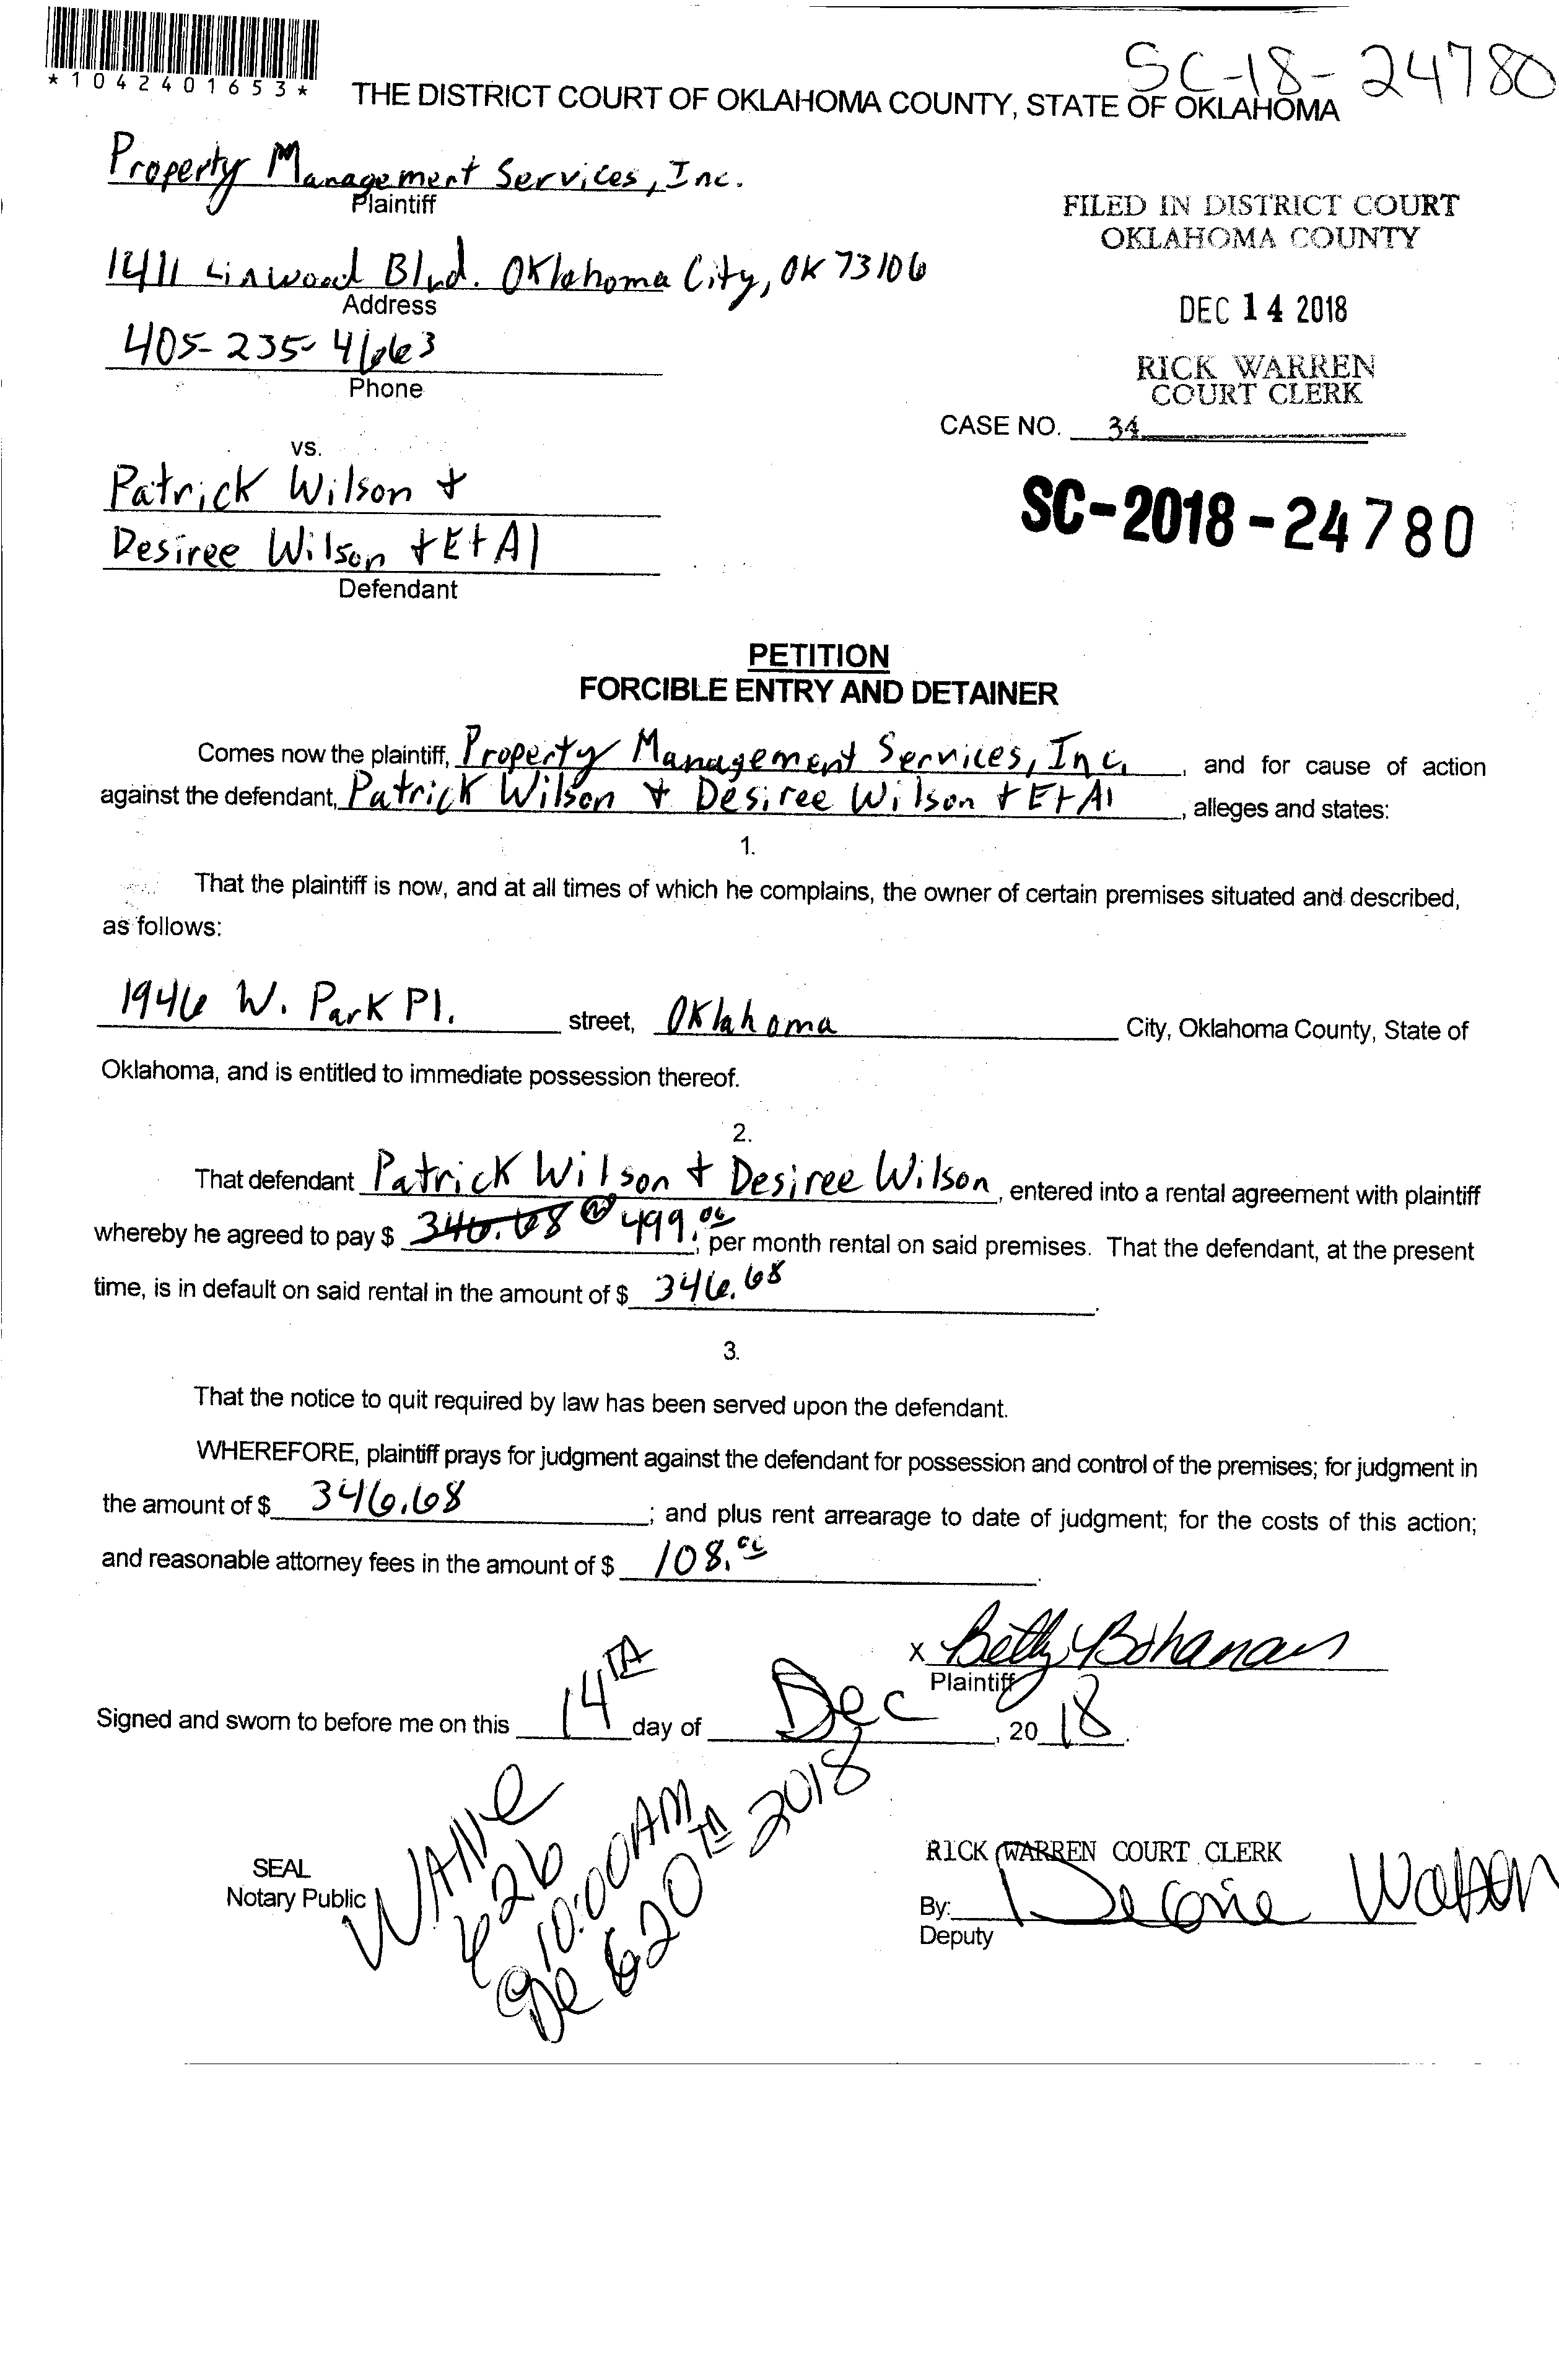 SC-18-24780
*1042401653*
THE DISTRICT COURT OF OKLAHOMA COUNTY, STATE OF OKLAHOMA
Property Management Services, Inc.
Plaintiff
FILED IN DISTRICT COURT
OKLAHOMA COUNTY
1411 Linwood Blvd. Oklahoma City, OK 73106
Address
DEC 14 2018
405-235-4663
Phone
RICK WARREN
COURT CLERK
CASE NO. 34
vs.
Patrick Wilson +
SC-2018-24780
Desiree Wilson + Et Al
Defendant
PETITION
FORCIBLE ENTRY AND DETAINER
Comes now the plaintiff, Property Management Services, Inc., and for cause of action
against the defendant, Patrick Wilson + Desiree Wilson + Et Al, alleges and states:
1.
That the plaintiff is now, and at all times of which he complains, the owner of certain premises situated and described,
as follows:
1946 W. Park Pl. street, Oklahoma City, Oklahoma County, State of
Oklahoma, and is entitled to immediate possession thereof.
2.
That defendant Patrick Wilson + Desiree Wilson, entered into a rental agreement with plaintiff
whereby he agreed to pay $ 346.68 499.00, per month rental on said premises. That the defendant, at the present
time, is in default on said rental in the amount of $ 346.68.
3.
That the notice to quit required by law has been served upon the defendant.
WHEREFORE, plaintiff prays for judgment against the defendant for possession and control of the premises; for judgment in
the amount of $ 346.68; and plus rent arrearage to date of judgment; for the costs of this action;
and reasonable attorney fees in the amount of $ 108.00.
x Betty Bohanan
Plaintiff
Signed and sworn to before me on this 14th day of Dec, 2018.
10:00AM
2018
SEAL
Notary Public
RICK WARREN COURT CLERK
By:
Deputy